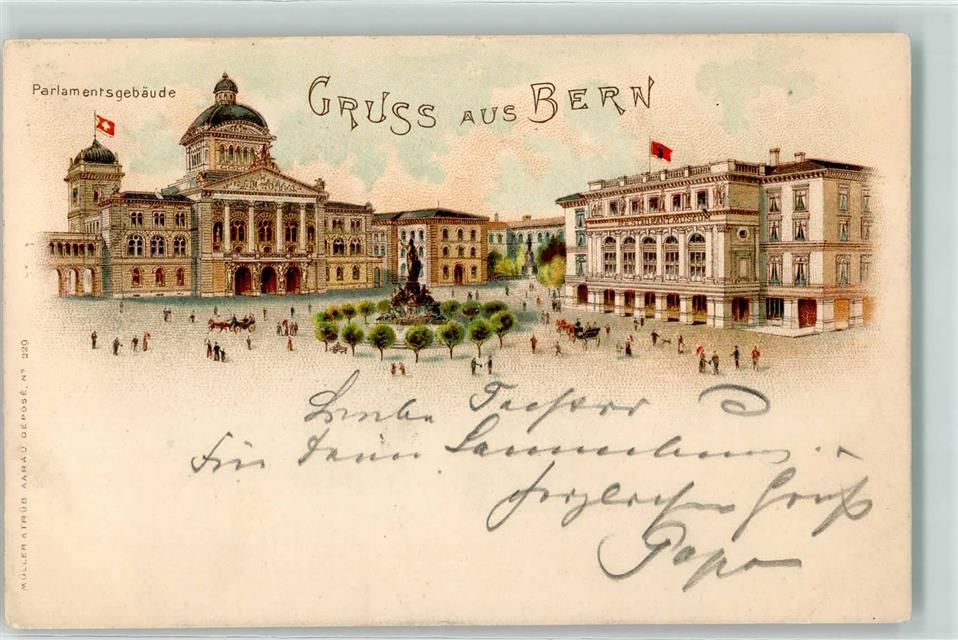 Parlamentsgebäude
GRUSS AUS BERN
Liebe Tochter
Für deine Sammlung.
herzlichen Gruß
Papa
MÜLLER & TRÜB AARAU DÉPOSÉ, Nº 229